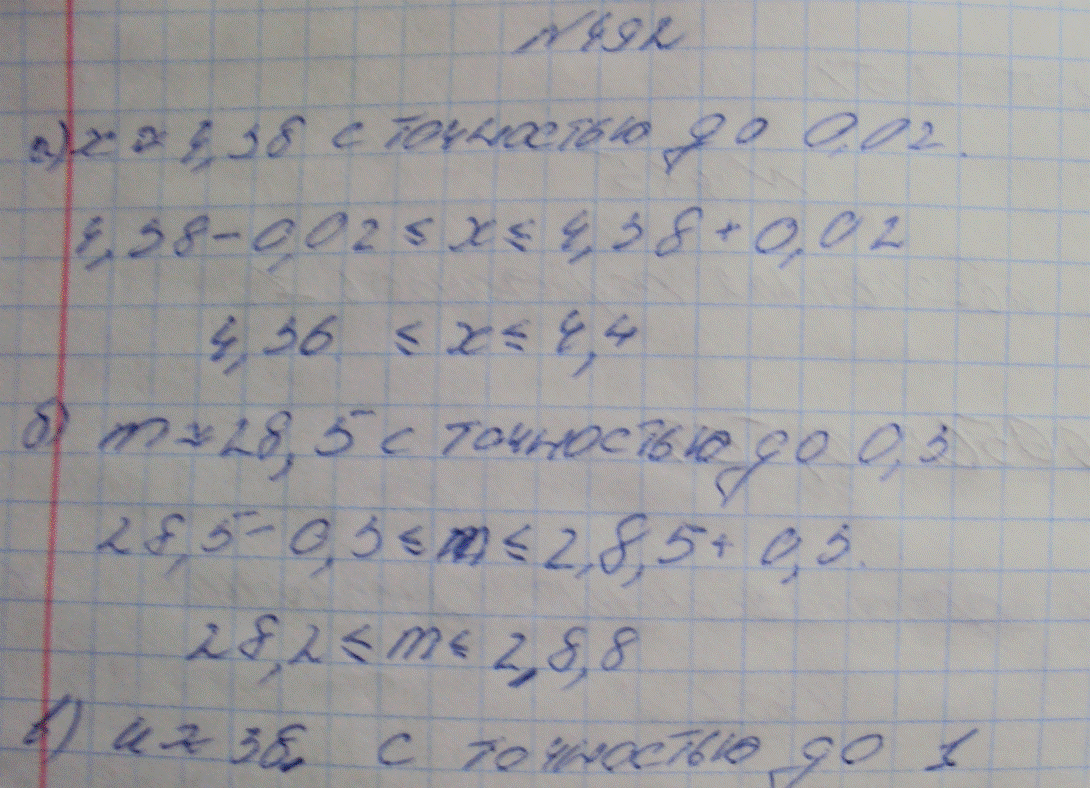 №492
а) x ≈ 4,38 с точностью до 0,02.
4,38 - 0,02 ≤ x ≤ 4,38 + 0,02
4,36 ≤ x ≤ 4,4
б) m ≈ 28,5 с точностью до 0,3
28,5 - 0,3 ≤ m ≤ 2,8,5 + 0,3.
28,2 ≤ m ≤ 2,8,8
в) u ≈ 38, с точностью до 1